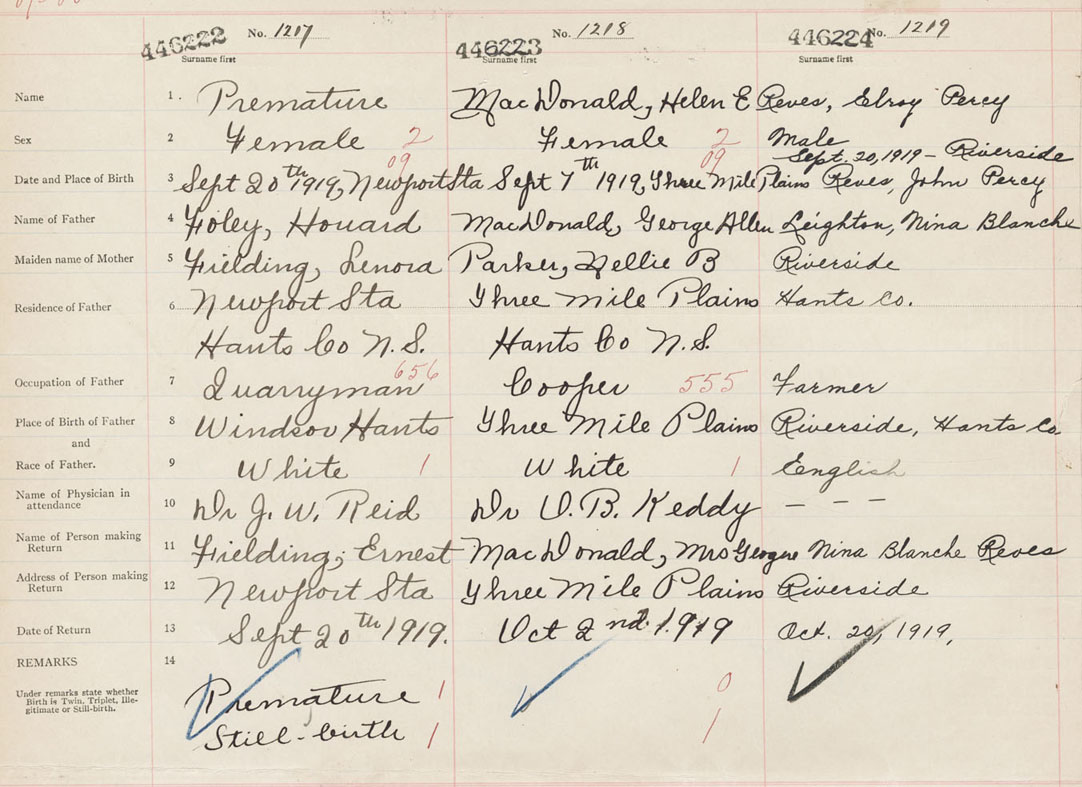 446222 No. 1217 446223 No. 1218 446224 No. 1219
Surname first Surname first Surname first
Name 1. Premature MacDonald, Helen E Reves, Elroy Percy
Sex 2 Female 2 Female 2 Male
09 09 Sept. 20, 1919 - Riverside
Date and Place of Birth 3 Sept 20th 1919, Newport Sta Sept 7th 1919, Three Mile Plains Reves, John Percy
Name of Father 4 Foley, Houard MacDonald, George Allen Leighton, Nina Blanche
Maiden name of Mother 5 Fielding, Lenora Parker, Nellie B Riverside
Residence of Father 6 Newport Sta Three Mile Plains Hants Co.
Hants Co N.S. Hants Co N.S.
Occupation of Father 7 Quarryman 656 Cooper 555 Farmer
Place of Birth of Father 8 Windsor Hants Three Mile Plains Riverside, Hants Co
and
Race of Father. 9 White 1 White 1 English
Name of Physician in
attendance 10 Dr J. W. Reid Dr O. B. Keddy - - -
Name of Person making
Return 11 Fielding, Ernest MacDonald, Mrs George Nina Blanche Reves
Address of Person making
Return 12 Newport Sta Three Mile Plains Riverside
Date of Return 13 Sept 20th 1919. Oct 2nd. 1919 Oct. 20, 1919,
REMARKS 14
Under remarks state whether
Birth is Twin, Triplet, Ille-
gitimate or Still-birth.
Premature 1 0
Still-birth 1 1